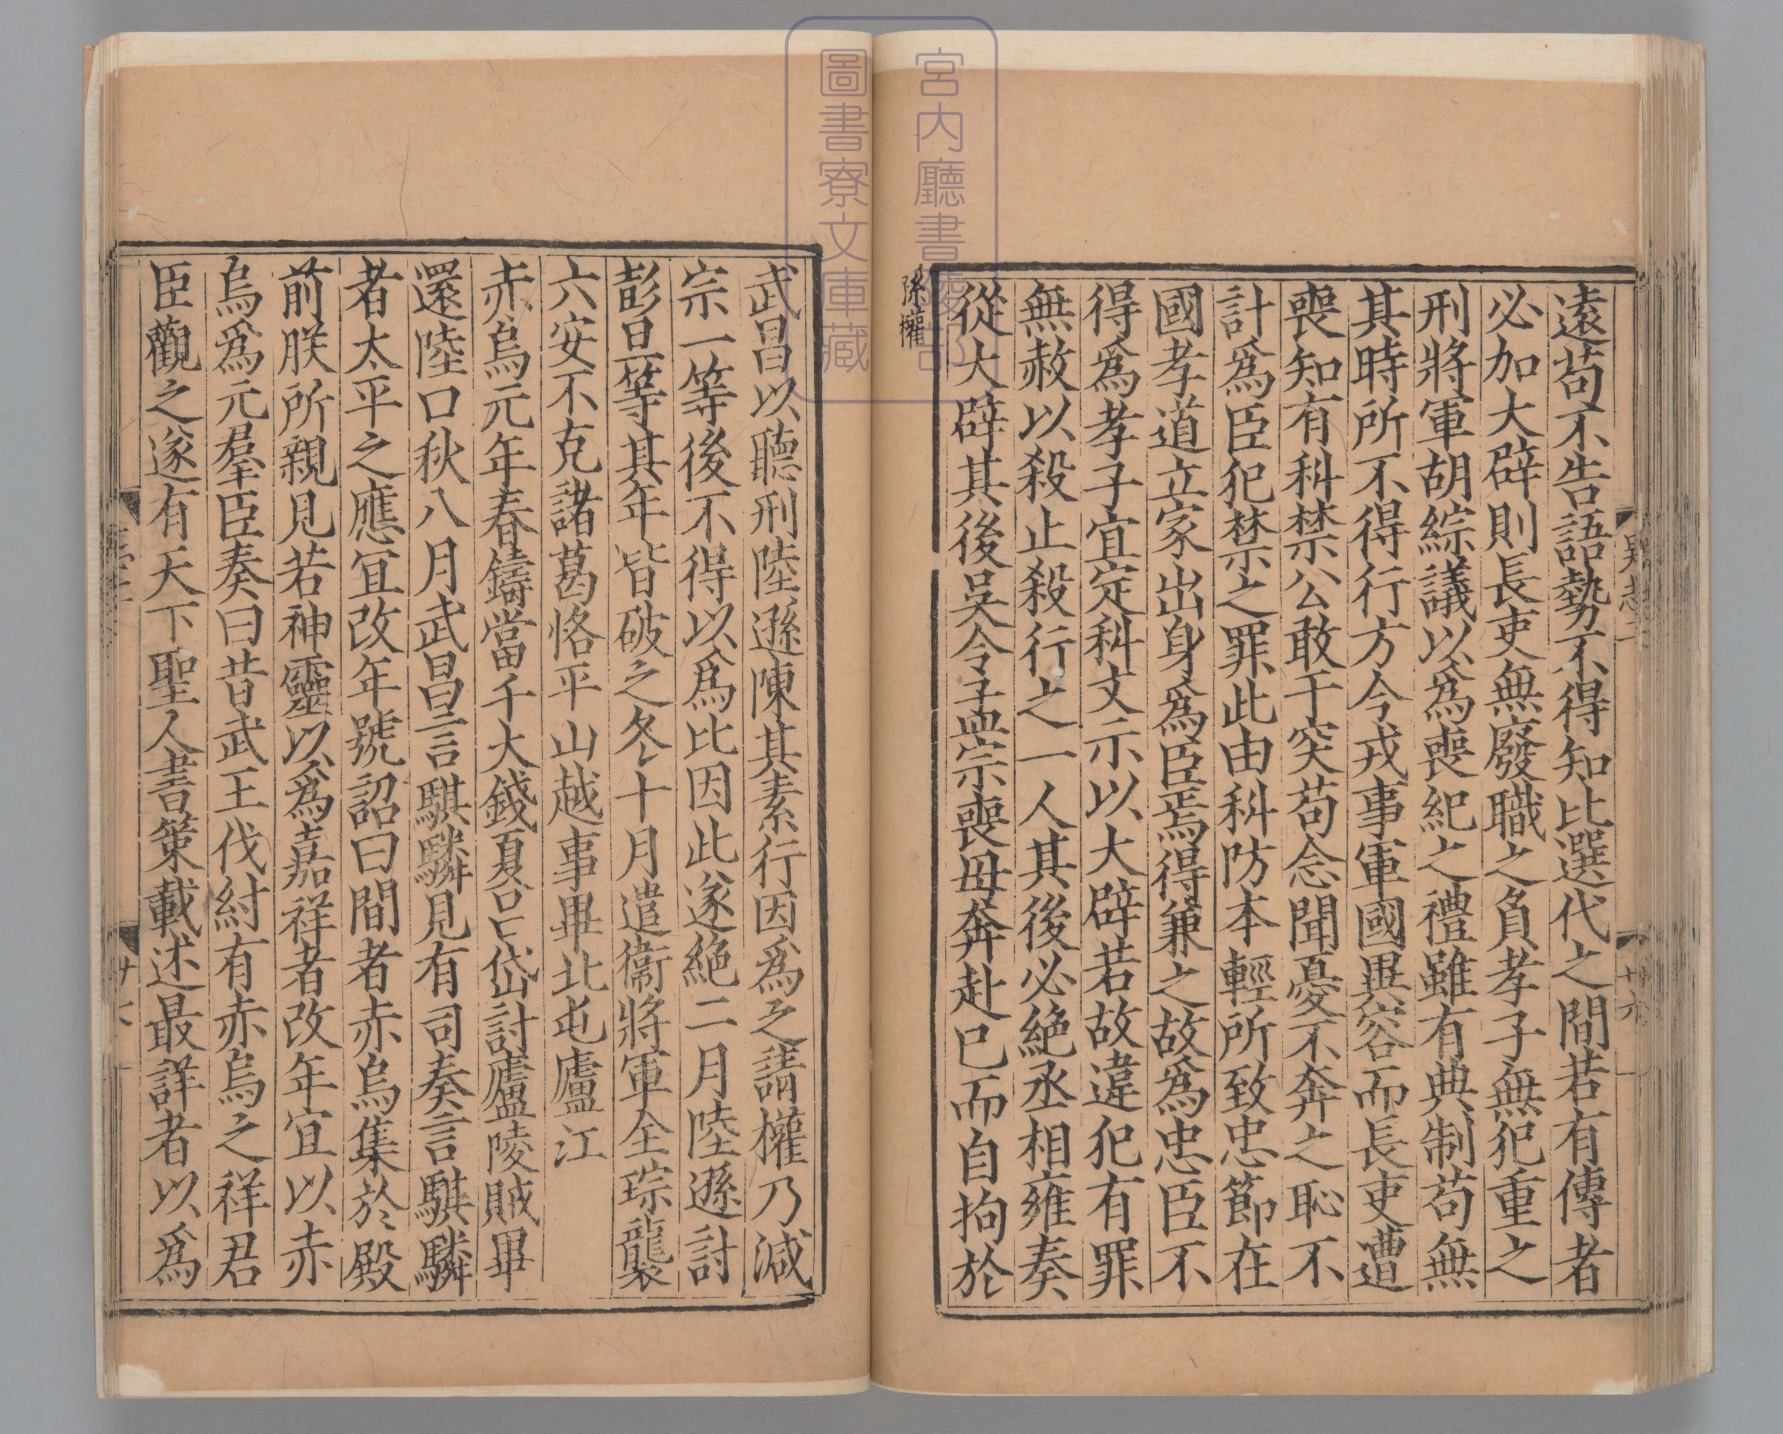 遠苟不告語勢不得知比選代之間若有傳者
必加大辟則長吏無廢職之負孝子無犯重之
刑將軍胡綜議以爲喪紀之禮雖有典制苟無
其時所不得行方今戎事軍國異容而長吏遭
喪知有科禁公敢干突苟念聞憂不奔之恥不
計爲臣犯禁之罪此由科防本輕所致忠節在
國孝道立家出身爲臣焉得兼之故爲忠臣不
得爲孝子宜定科文示以大辟若故違犯有罪
無赦以殺止殺行之一人其後必絶丞相雍奏
從大辟其後吳令孟宗喪母奔赴已而自拘於
孫權
武昌以聽刑陸遜陳其素行因爲之請權乃減
宗一等後不得以爲比因此遂絶二月陸遜討
彭旦等其年皆破之冬十月遣衞將軍全琮襲
六安不克諸葛恪平山越事畢北屯廬江
赤烏元年春鑄當千大錢夏呂岱討廬陵賊畢
還陸口秋八月武昌言騏驎見有司奏言騏驎
者太平之應宜改年號詔曰間者赤烏集於殿
前朕所親見若神靈以爲嘉祥者改年宜以赤
烏爲元羣臣奏曰昔武王伐紂有赤烏之祥君
臣觀之遂有天下聖人書策載述最詳者以爲
吳志二
廿六
宮内廳書陵部
圖書寮文庫藏